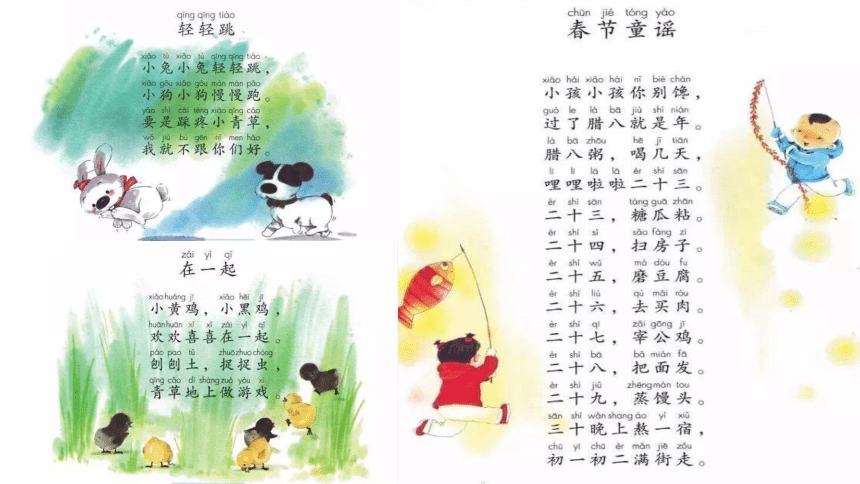 qīng qīng tiào
轻轻跳
xiǎo tù xiǎo tù qīng qīng tiào
小兔小兔轻轻跳，
xiǎo gǒu xiǎo gǒu màn màn pǎo
小狗小狗慢慢跑。
yào shì cǎi téng xiǎo qīng cǎo
要是踩疼小青草，
wǒ jiù bù gēn nǐ men hǎo
我就不跟你们好。
zài yì qǐ
在一起
xiǎo huáng jī xiǎo hēi jī
小黄鸡，小黑鸡，
huān huān xǐ xǐ zài yì qǐ
欢欢喜喜在一起。
páo pao tǔ zhuō zhuo chóng
刨刨土，捉捉虫，
qīng cǎo dì shàng zuò yóu xì
青草地上做游戏。
chūn jié tóng yáo
春节童谣
xiǎo hái xiǎo hái nǐ bié chán
小孩小孩你别馋，
guò le là bā jiù shì nián
过了腊八就是年。
là bā zhōu hē jǐ tiān
腊八粥，喝几天，
lī lī lā lā èr shí sān
哩哩啦啦二十三。
èr shí sān táng guā zhān
二十三，糖瓜粘。
èr shí sì sǎo fáng zi
二十四，扫房子。
èr shí wǔ mò dòu fu
二十五，磨豆腐。
èr shí liù qù mǎi ròu
二十六，去买肉。
èr shí qī zǎi gōng jī
二十七，宰公鸡。
èr shí bā bǎ miàn fā
二十八，把面发。
èr shí jiǔ zhēng mán tou
二十九，蒸馒头。
sān shí wǎn shang áo yì xiǔ
三十晚上熬一宿，
chū yī chū èr mǎn jiē zǒu
初一初二满街走。